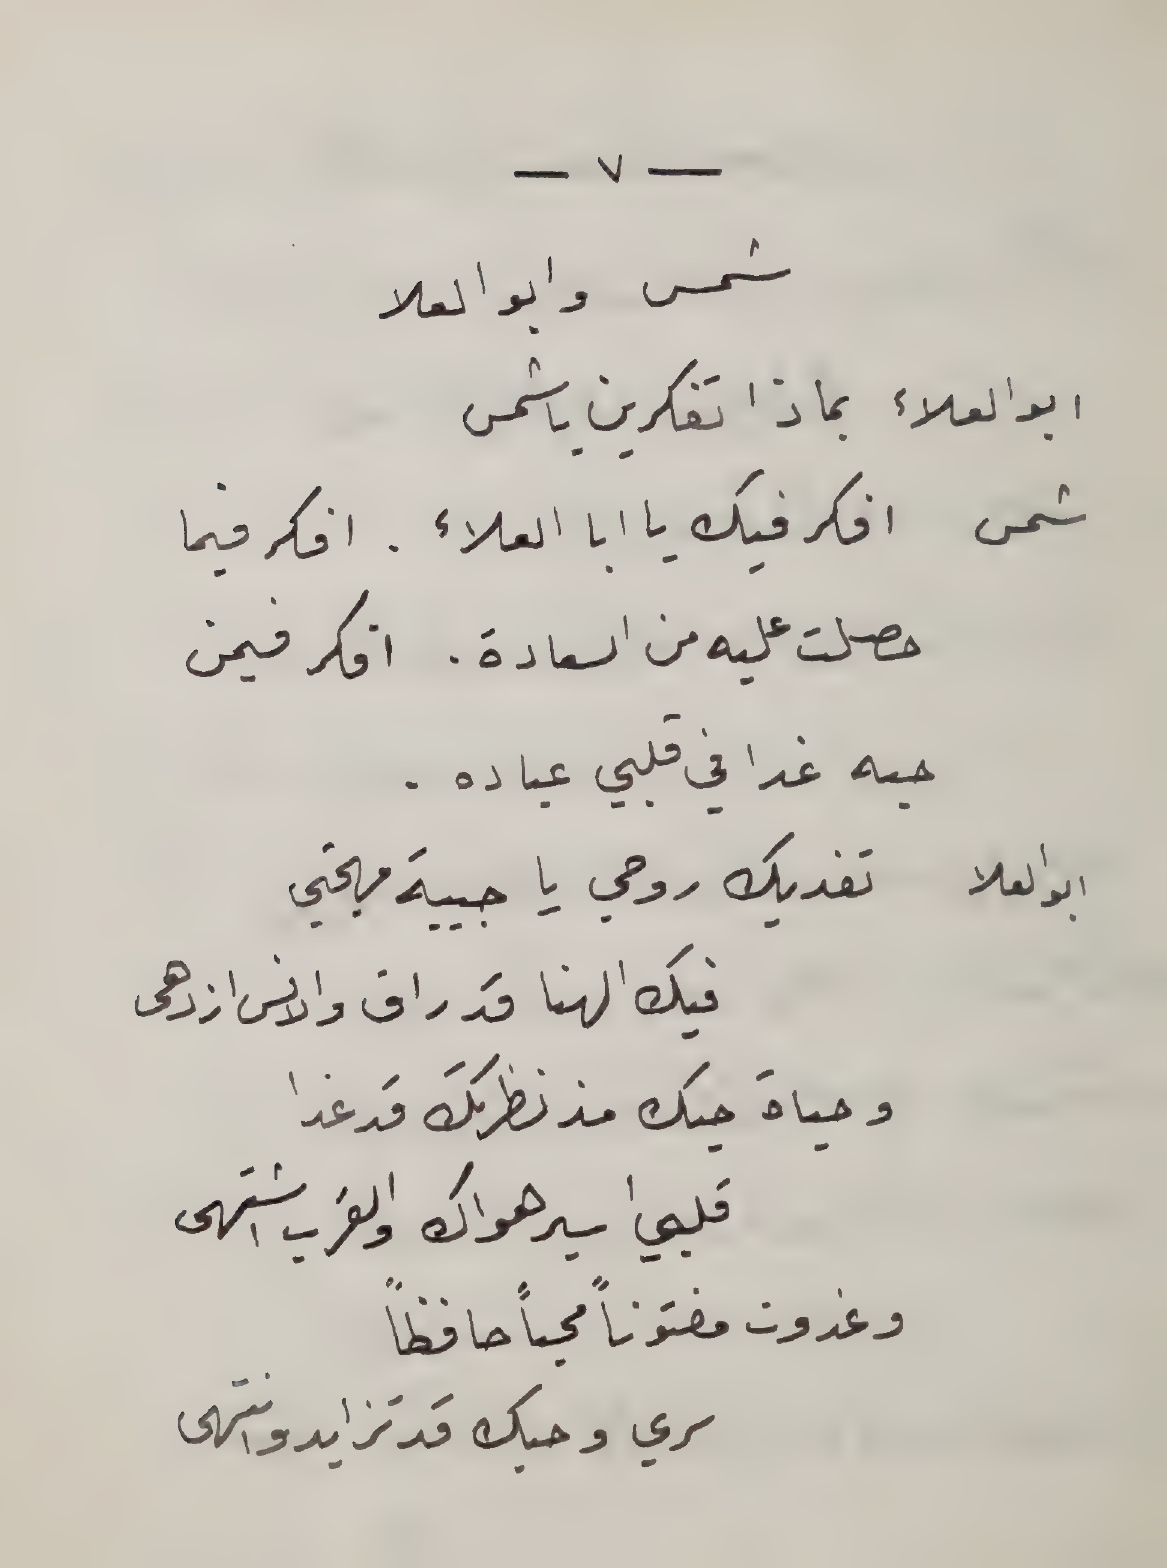 — ٧ —
شمس وابو العلا
ابو العلاء بماذا تفكرين ياشمس
شمس افكر فيك يا ابا العلاء . افكر فيما
حصلت عليه من السعادة . افكر فيمن
حبه غدا في قلبي عباده .
ابو العلا تفديك روحي يا حبيبة مهجتي
فيك الهنا قد راق والانس ازدهى
وحياة حبك مذ نظرتك قد غدا
قلبي اسير هواك والقرب اشتهى
وغدوت مفتوناً محباً حافظاً
سري وحبك قد تزايد وانتهى